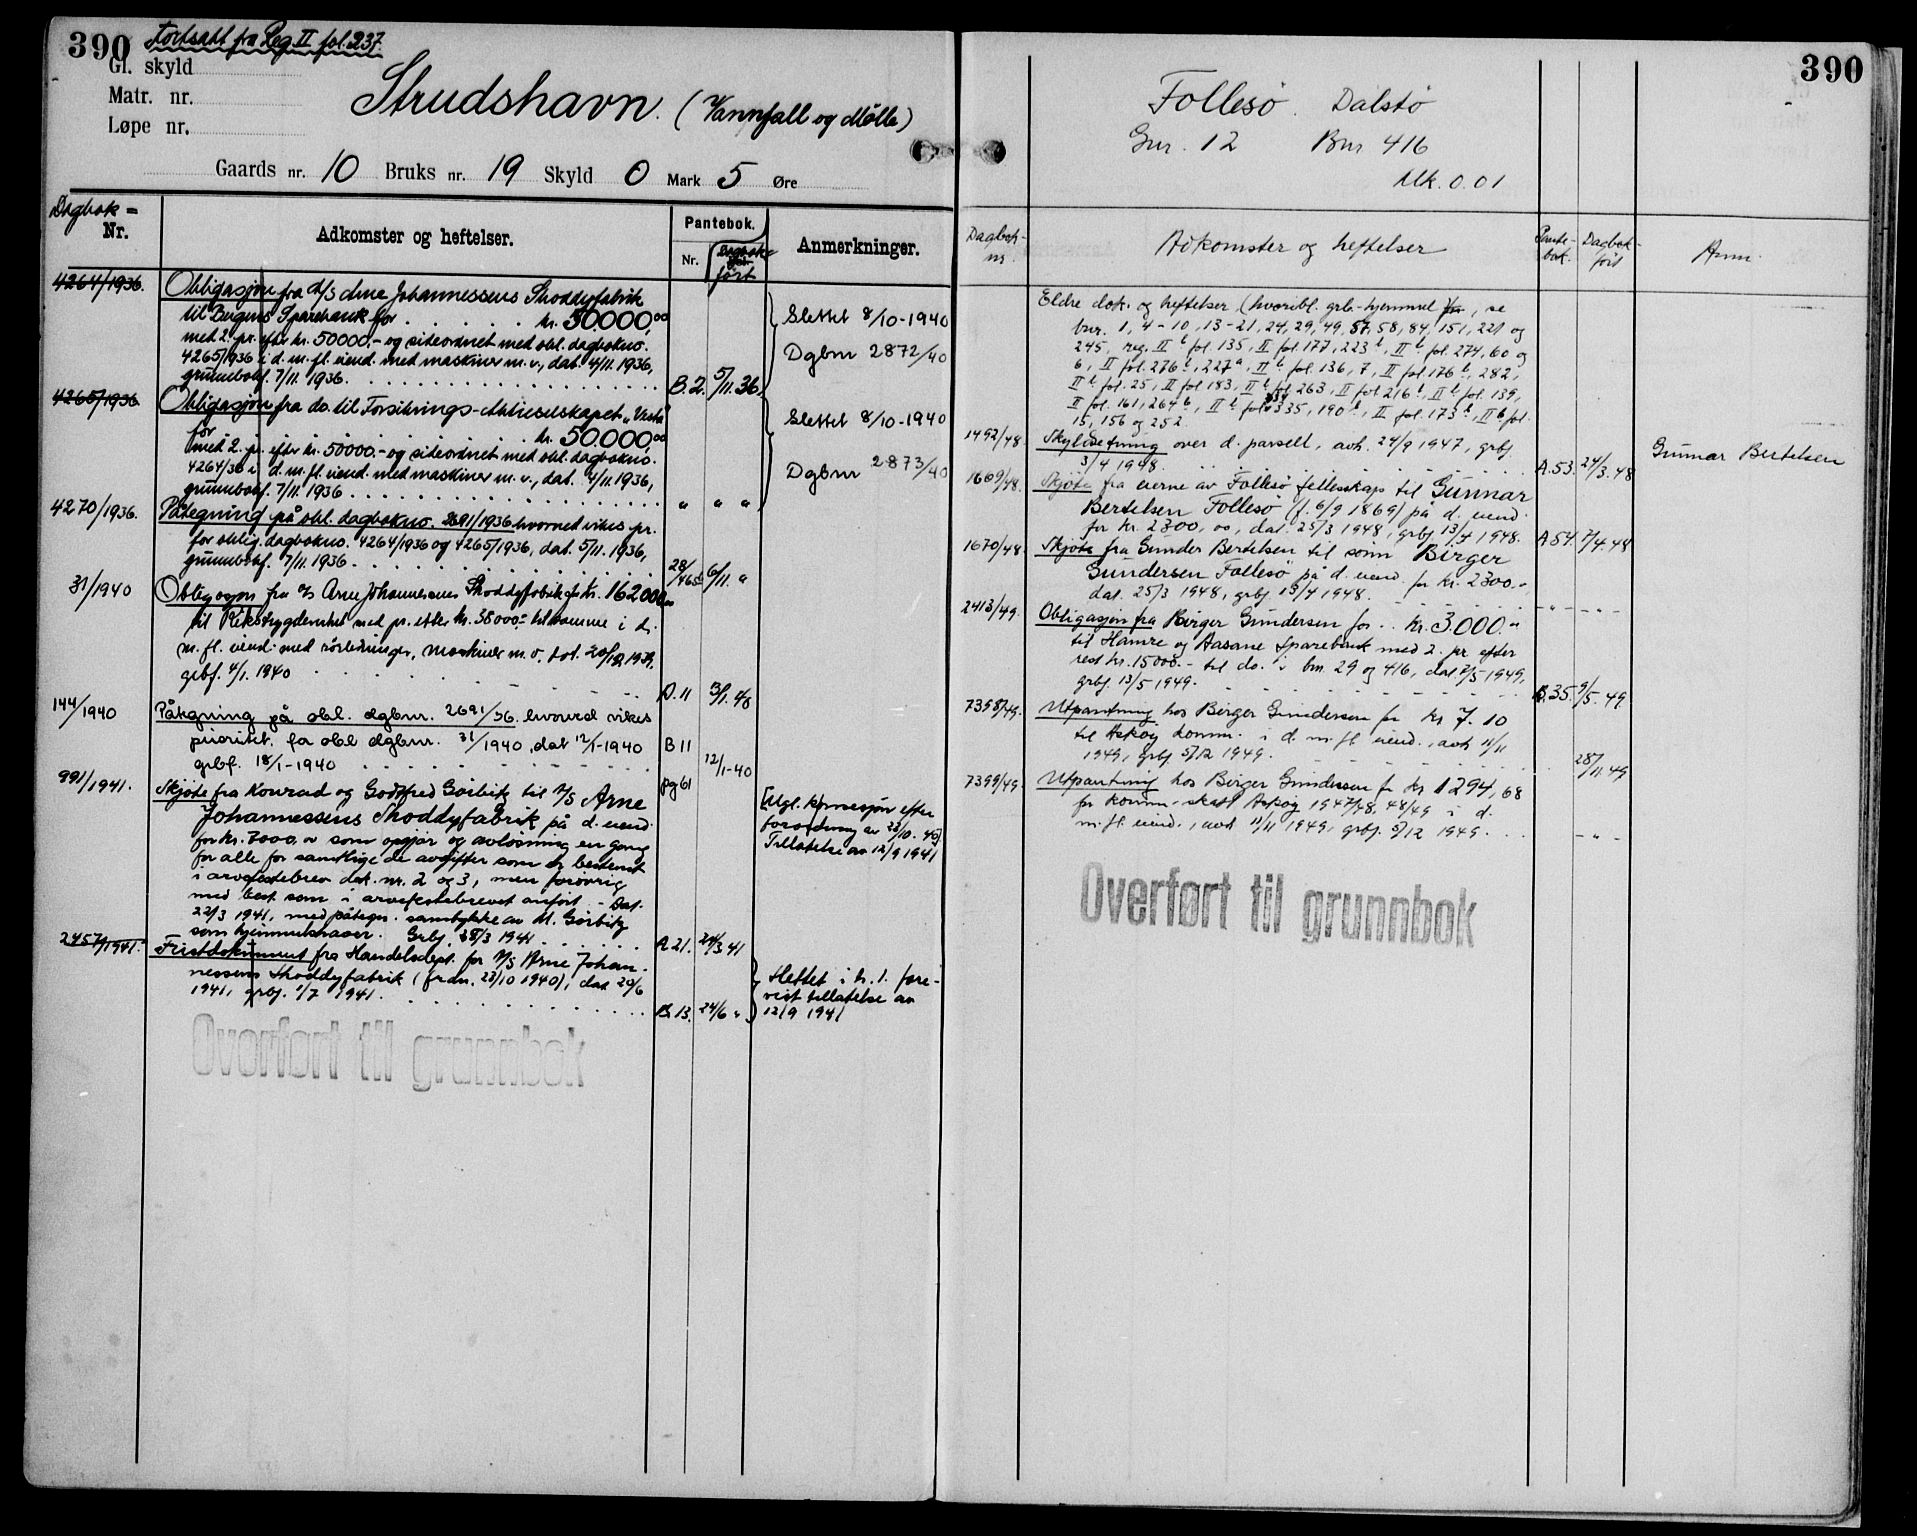 390
Fortsatt fra Reg II fol. 237.
Gl. skyld
Matr. nr.
Løpe nr.
Strudshavn. (Vannfall og Mølle)
Gaards nr. 10 Bruks nr. 19 Skyld 0 Mark 5 Øre
Dagbok-
Nr.
Adkomster og heftelser.
Pantebok.
Nr.
Dagbok-
ført
Anmerkninger.
4264/1936.
Obligasjon fra A/S Arne Johannessens Shoddyfabrik
til Bergens Sparebank for . . . kr. 50.000,00
med 2. pr. efter kr. 50000.- og sideordnet med obl. dagbokno.
4265/1936 i d. m. fl. eiend. med maskiner m. v., dat. 4/11. 1936,
grunnbokf. 7/11. 1936.
B. 2. 5/11. 36.
Slettet 8/10-1940
Dgbnr 2872/40
4265/1936
Obligasjon fra do. til Forsikrings-Aktieselskapet "Vesta"
for . . . kr. 50.000,00
med 2. pr. efter kr. 50000.- og sideordnet med obl. dagbokno.
4264/36 i d. m. fl. eiend. med maskiner m. v., dat. 4/11. 1936,
grunnbokf. 7/11. 1936
" " "
Slettet 8/10-1940
Dgbnr 2873/40
4270/1936.
Påtegning på obl. dagbokno. 2691/1936 hvorved vikes pr.
for oblig. dagbokno. 4264/1936 og 4265/1936, dat. 5/11. 1936,
grunnbokf. 7/11. 1936
28/465 6/11. "
31/1940
Obligasjon fra A/S Arne Johannessens Shoddyfabrik for kr. 162000,00
til Rikstrygdeverket med pr. etter kr. 35000,- tilkomme i d.
m. fl. eiend. med rørledninger, maskiner m. v. dat. 20/12 1939,
grbf. 4/1. 1940
D. 11 3/1. 40
144/1940
Påtegning på obl. dgbnr. 2691/36 hvorved vikes
prioritet for obl dgbnr. 31/1940, dat 12/1-1940
grbf. 18/1-1940
B 11
pg 61
12/1-40
991/1941.
Skjøte fra Konrad og Godtfred Görbitz til A/S Arne
Johannessens Shoddyfabrik på d. eiend.
for kr. 7000,00 som opgjør og avløsning en gang
for alle for samtlige de avgifter som er bestemt
i arvefestebrev dok. nr. 2 og 3, men forøvrig
med best. som i arvefestebrevet anført. - Dat.
22/3 1941, med påtegn. samtykke av M. Görbitz
som hjemmelshaver. Grbf. 28/3 1941
A 21. 24/3 41
[Mgl. konsesjon efter
forordning av 23/10. 40]
Tillatelse av 12/9 1941
2457/1941.
Fristdokument fra Handelsdept. for A/S Arne Johan-
nessens Shoddyfabrik (frdn. 23/10 1940), dat 20/6
1941, grbf. 1/7 1941.
B. 13. 24/6 "
Slettet i h. t. fore-
vist tillatelse av
12/9 1941
Overført til grunnbok
390
Follesø. Dalstø
Gnr. 12 Bnr 416
Mk. 0.01
Dagbok-
nr.
Adkomster og heftelser
Pante-
bok.
Dagbok-
ført
Anm.
Eldre dok. og heftelser (hvoribl. grb-hjemmel, se
bnr. 1, 4-10, 13-21, 24, 29, 49, 57, 58, 84, 151, 221 og
245, reg. II b fol. 135, II fol. 177, 223 b, II b fol. 274, 60 og
6, II fol. 276 b, 227 a, II b fol. 136, 7, II fol. 176 b, 282,
II b fol. 25, II fol 183, II b fol 263, II fol 216 b, II b fol. 139,
II fol. 161, 264 b, II b fol 335, 190 b, II fol. 173 b, II b fol.
15, 156 og 252
1492/48.
Skyldsetning over d. parsell, avh. 24/9 1947, grbf.
3/4 1948.
A. 53. 24/3. 48
Gunnar Bertelsen
1669/48.
Skjøte fra eierne av Follesø fellesskap til Gunnar
Bertelsen Follesø (f. 6/9 1869) på d. eiend.
for kr. 2300,00, dat. 25/3 1948, grbf. 13/4 1948.
A 54. 7/4. 48
1670/48.
Skjøte fra Gunder Bertelsen til sønn Birger
Gundersen Follesø på d. eiend. for kr. 2300.-
dat. 25/3 1948, grbf. 13/4 1948.
-"- -"-
2413/49.
Obligasjon fra Birger Gundersen for . . Kr. 3.000.-
til Hamre og Aasane Sparebank med 2. pr. efter
rest kr. 15000.- til do. i bnr. 29 og 416, dat 7/5 1949,
grbf. 13/5 1949.
B. 35. 9/5. 49
7398/49.
Utpantning hos Birger Gundersen for kr 7.10
til Askøy komm. i d. m. fl. eiend., avh 11/11
1949, grbf 5/12 1949.
28/11. 49
7399/49.
Utpantning hos Birger Gundersen for kr 1294,68
for komm. skatt Askøy 1947/48, 48/49 i d.
m. fl. eiend., avh 11/11 1949, grbf. 5/12 1949.
-"-
Overført til grunnbok